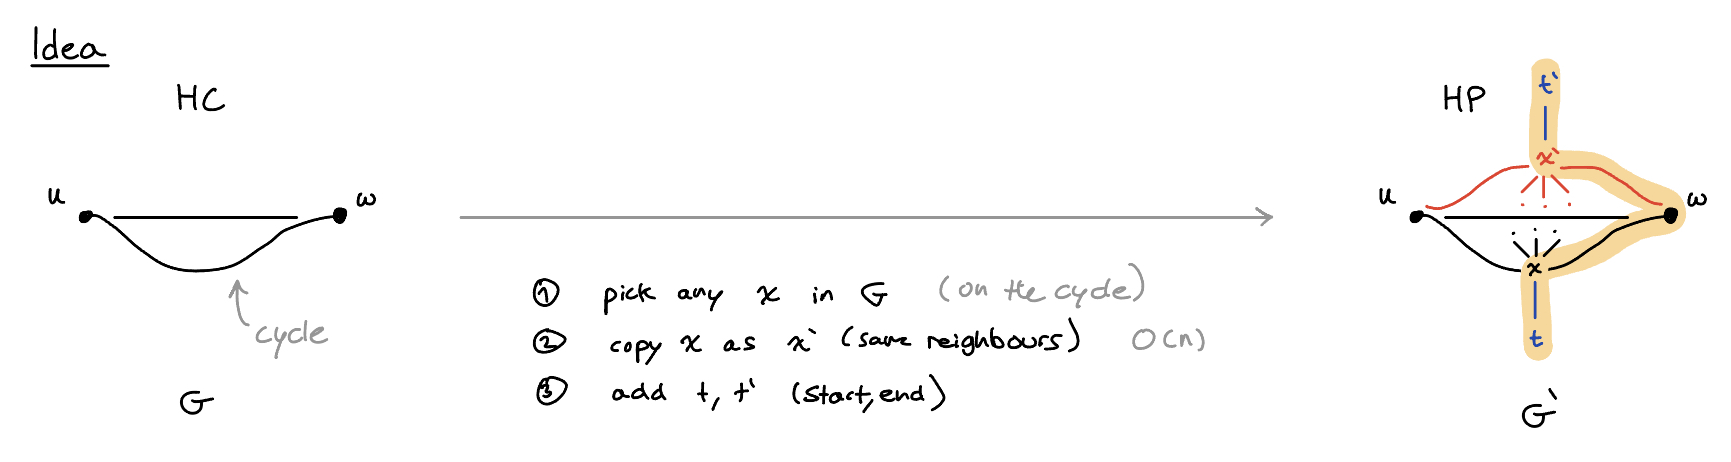 Idea
HC
u
w
cycle
G
① pick any x in G (on the cycle)
② copy x as x` (same neighbours) O(n)
③ add t, t' (start, end)
HP
t`
x`
u
w
x
t
G`